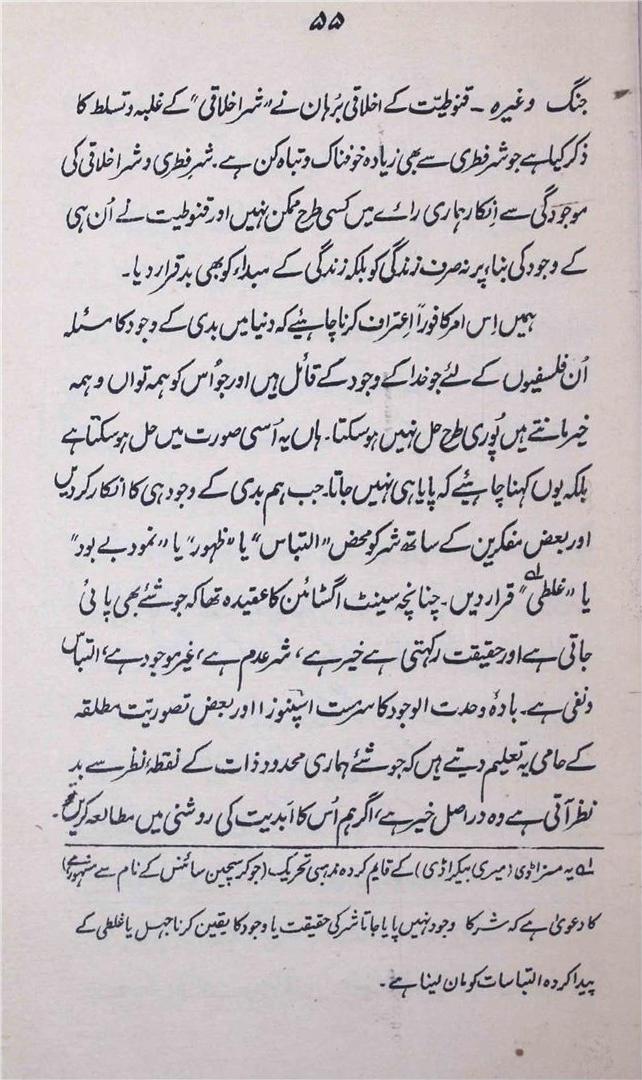 ۵۵
جنگ وغیرہ ۔ قنوطیّت کے اخلاقی برُہان نے "شر اخلاقی" کے غلبہ وتسلط کا
ذکر کیا ہے جو شر فطری سے بھی زیادہ خوفناک و تباہ کن ہے۔ شر فطری و شر اخلاقی کی
موجودگی سے اِنکار ہماری رائے میں کسی طرح ممکن نہیں اور قنوطیت نے اُن ہی
کے وجود کی بناء پر نہ صرف زندگی کو بلکہ زندگی کے مبداء کو بھی بد قرار دیا۔
ہمیں اِس امر کا فوراً اعتراف کرنا چاہیئے کہ دنیا میں بدی کے وجود کا مسئلہ
اُن فلسفیوں کے لئے جو خدا کے وجود کے قائل ہیں اور جو اُس کو ہمہ تواں و ہمہ
خیر مانتے ہیں پُوری طرح حل نہیں ہو سکتا۔ ہاں یہ اُسی صورت میں حل ہو سکتا ہے
بلکہ یوں کہنا چاہیئے کہ پایا ہی نہیں جاتا۔ جب ہم بدی کے وجود ہی کا انکار کر دیں
اور بعض مفکرین کے ساتھ شر کو محض "التباس" یا "ظہور" یا "نمود بے بود"
یا "غلطی" لے قرار دیں۔ چنانچہ سینٹ اگسٹائن کا عقیدہ تھا کہ جو شئے بھی پائی
جاتی ہے اور حقیقت رکہتی ہے خیر ہے، شر عدم ہے، غیر موجود ہے، التباس
ونفی ہے۔ بادۂ وحدت الوجود کا سرمست اسپنوزا اور بعض تصوریتِ مطلقہ
کے حامی یہ تعلیم دیتے ہیں کہ جو شئے ہماری محدود ذات کے نقطۂ نظر سے بد
نظر آتی ہے وہ در اصل خیر ہے، اگر ہم اُس کا ابدیت کی روشنی میں مطالعہ کریں
لے یہ مسز اڈی (میری بیکر اڈی) کے قایم کردہ مذہبی تحریک (جو کرسچین سائنس کے نام سے مشہور ہے)
کا دعویٰ ہے کہ شر کا وجود نہیں پایا جاتا شر کی حقیقت یا وجود کا یقین کرنا جہل یا غلطی کے
پیدا کردہ التباسات کو مان لینا ہے۔